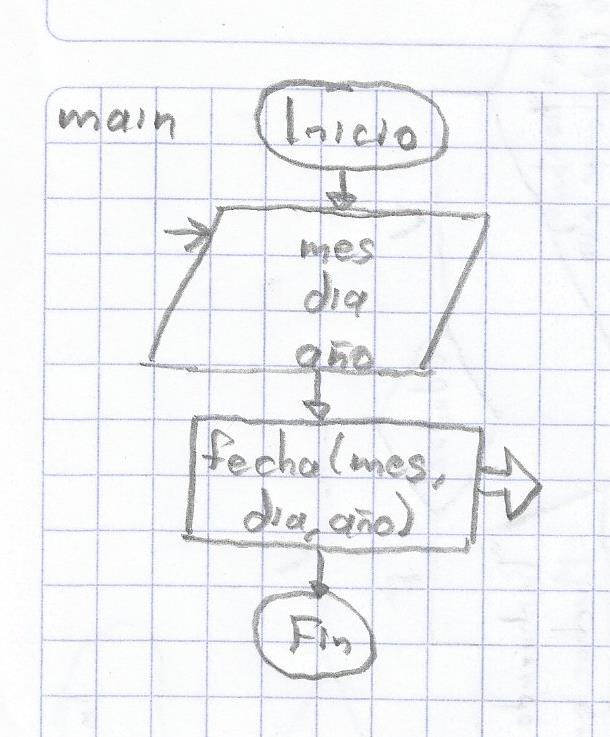 main
Inicio
mes
dia
año
fecha(mes,
dia, año)
Fin